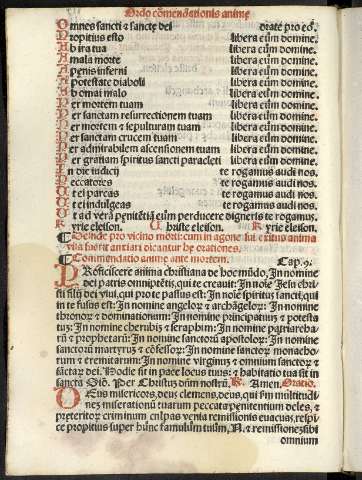 Ordo cōmendationis animę
Omnes sancti & sanctę dei orate pro eo.
Propitius esto libera eum domine.
Ab ira tua libera eum domine.
A mala morte libera eum domine.
A penis inferni libera eum domine.
A potestate diaboli libera eum domine.
Ab omni malo libera eum domine.
Per mortem tuam libera eum domine.
Per sanctam resurrectionem tuam libera eum domine.
Per mortem & sepulturam tuam libera eum domine.
Per sanctam crucem tuam libera eum domine.
Per admirabilem ascensionem tuam libera eum domine.
Per gratiam spiritus sancti paracleti libera eum domine.
In die iudicij te rogamus audi nos.
Peccatores te rogamus audi nos.
Vt ei parcas te rogamus audi nos.
Vt ei indulgeas te rogamus audi nos.
Vt ad verā penitētiā eum perducere digneris te rogamus.
Kyrie eleison. V. Christe eleison. K. Kyrie eleison.
Deinde pro vicino morti: cum in agone sui exitus anima
visa fuerit anxiari dicantur hę orationes.
Commendatio animę ante mortem. Cap. 9.
PRoficiscere anima christiana de hoc mūdo, In nomine
dei patris omnipotētis, qui te creauit: In noīe Jesu chri-
sti filij dei viui, qui pro te passus est: In noīe spiritus sancti, qui
in te fusus est: In nomine angelor & archāgelor: In nomine
thronor & dominationum: In nomine principatuum & potesta-
tus: In nomine cherubin & seraphim: In nomine patriarcha-
rū & prophetarū: In nomine sanctorū apostolor: In nomine
sanctorū martyrū & cōfessor: In nomine sanctor monacho-
rum & eremitarum: In nomine virginū & omnium sanctor &
sāctar dei. Hodie sit in pace locus tuus: & habitatio tua sit in
sancta Siō. Per Christum dnm nostrū. R. Amen. Oratio.
DEus misericors, deus clemens, deus, qui scd̄m multitudi-
nez miserationū tuarum peccata penitentium deles, &
preteritor criminum culpas venia remissionis euacuas, respi-
ce propitius super hunc famulum tuum, N. & remissionez sibi
omnium